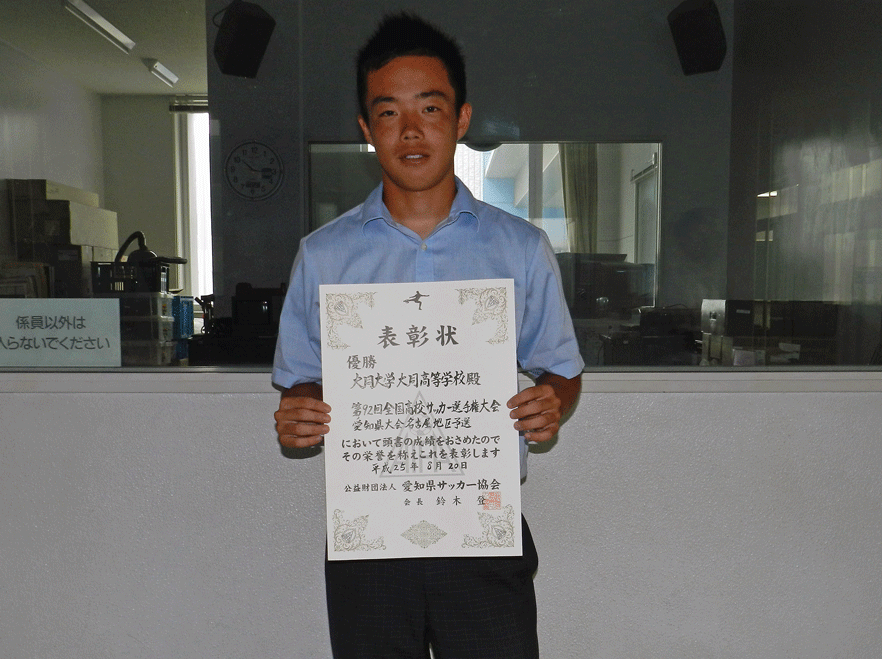 係員以外は
入らないでください
表彰状
優勝
大同大学大同高等学校殿
第92回全国高校サッカー選手権大会
愛知県大会名古屋地区予選
において頭書の成績をおさめたので
その栄誉を称えこれを表彰します
平成25年8月20日
公益財団法人 愛知県サッカー協会
会長 鈴木 登